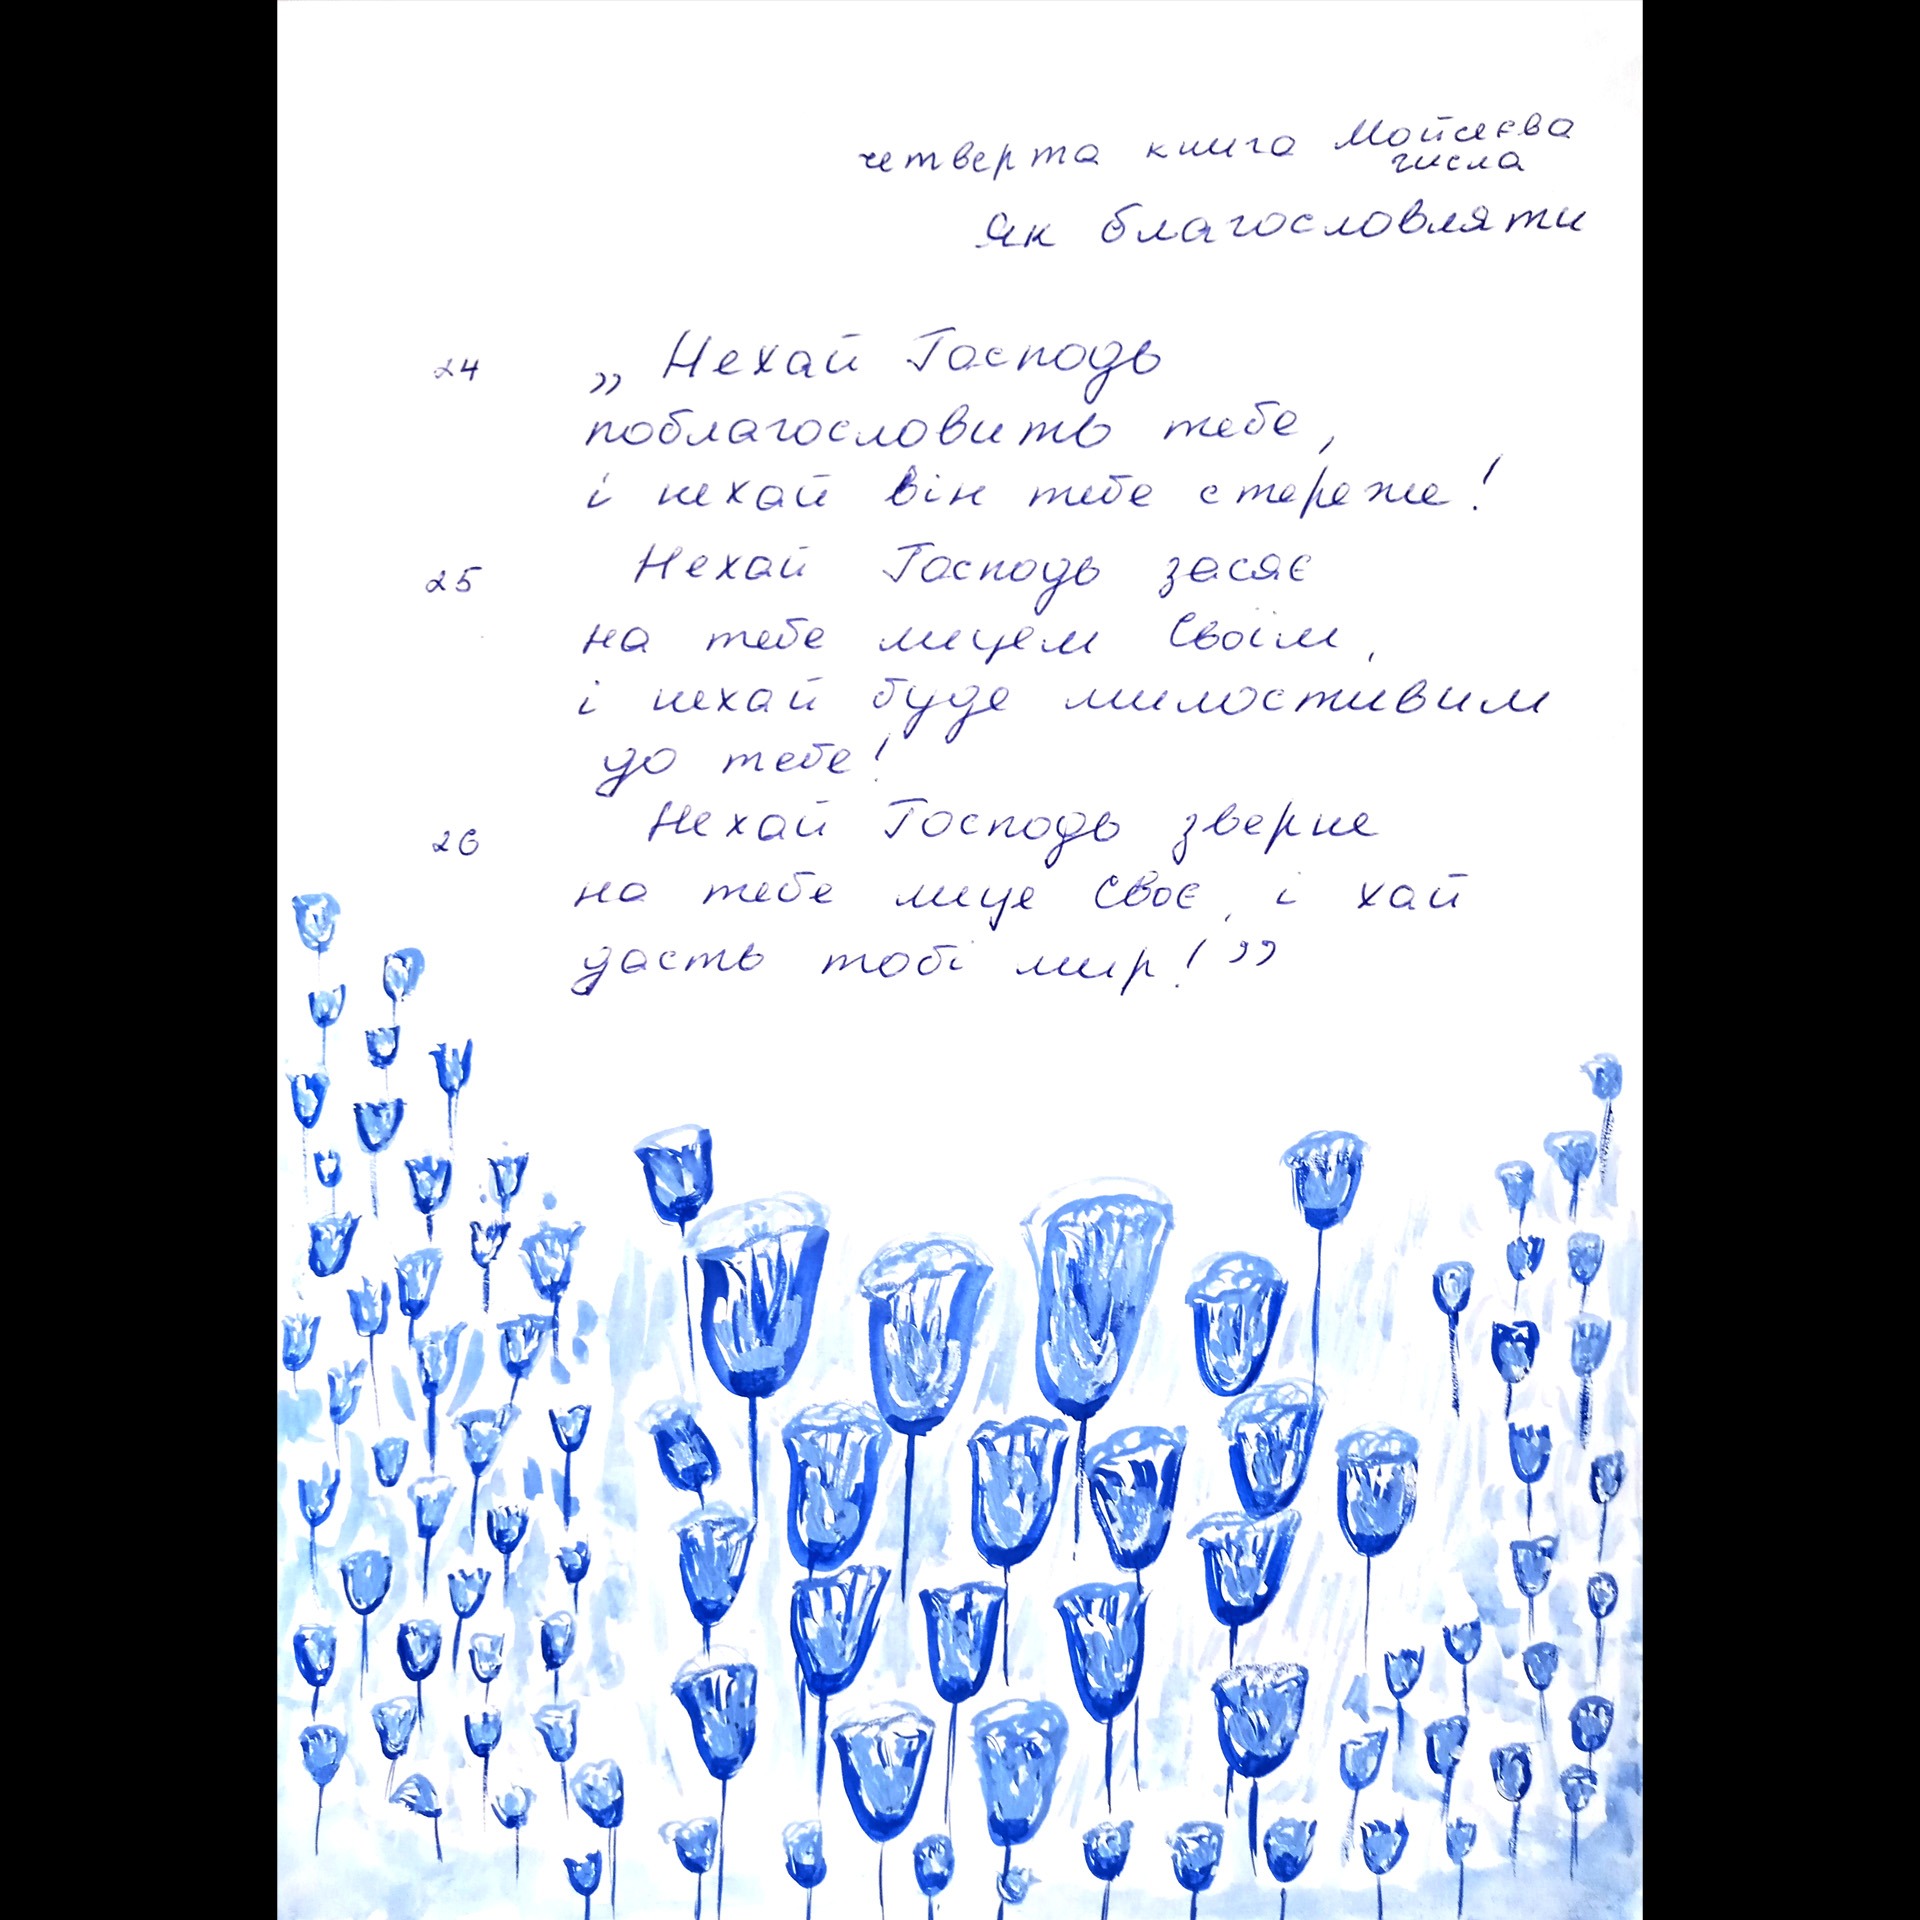 четверта книга Мойсеєва
числа
Як благословляти
24 „ Нехай Господь
поблагословить тебе,
і нехай він тебе стереже!
25 Нехай Господь засяє
на тебе лицем Своїм,
і нехай буде милостивим
до тебе!
26 Нехай Господь зверне
на тебе лице Своє, і хай
дасть тобі мир! ”